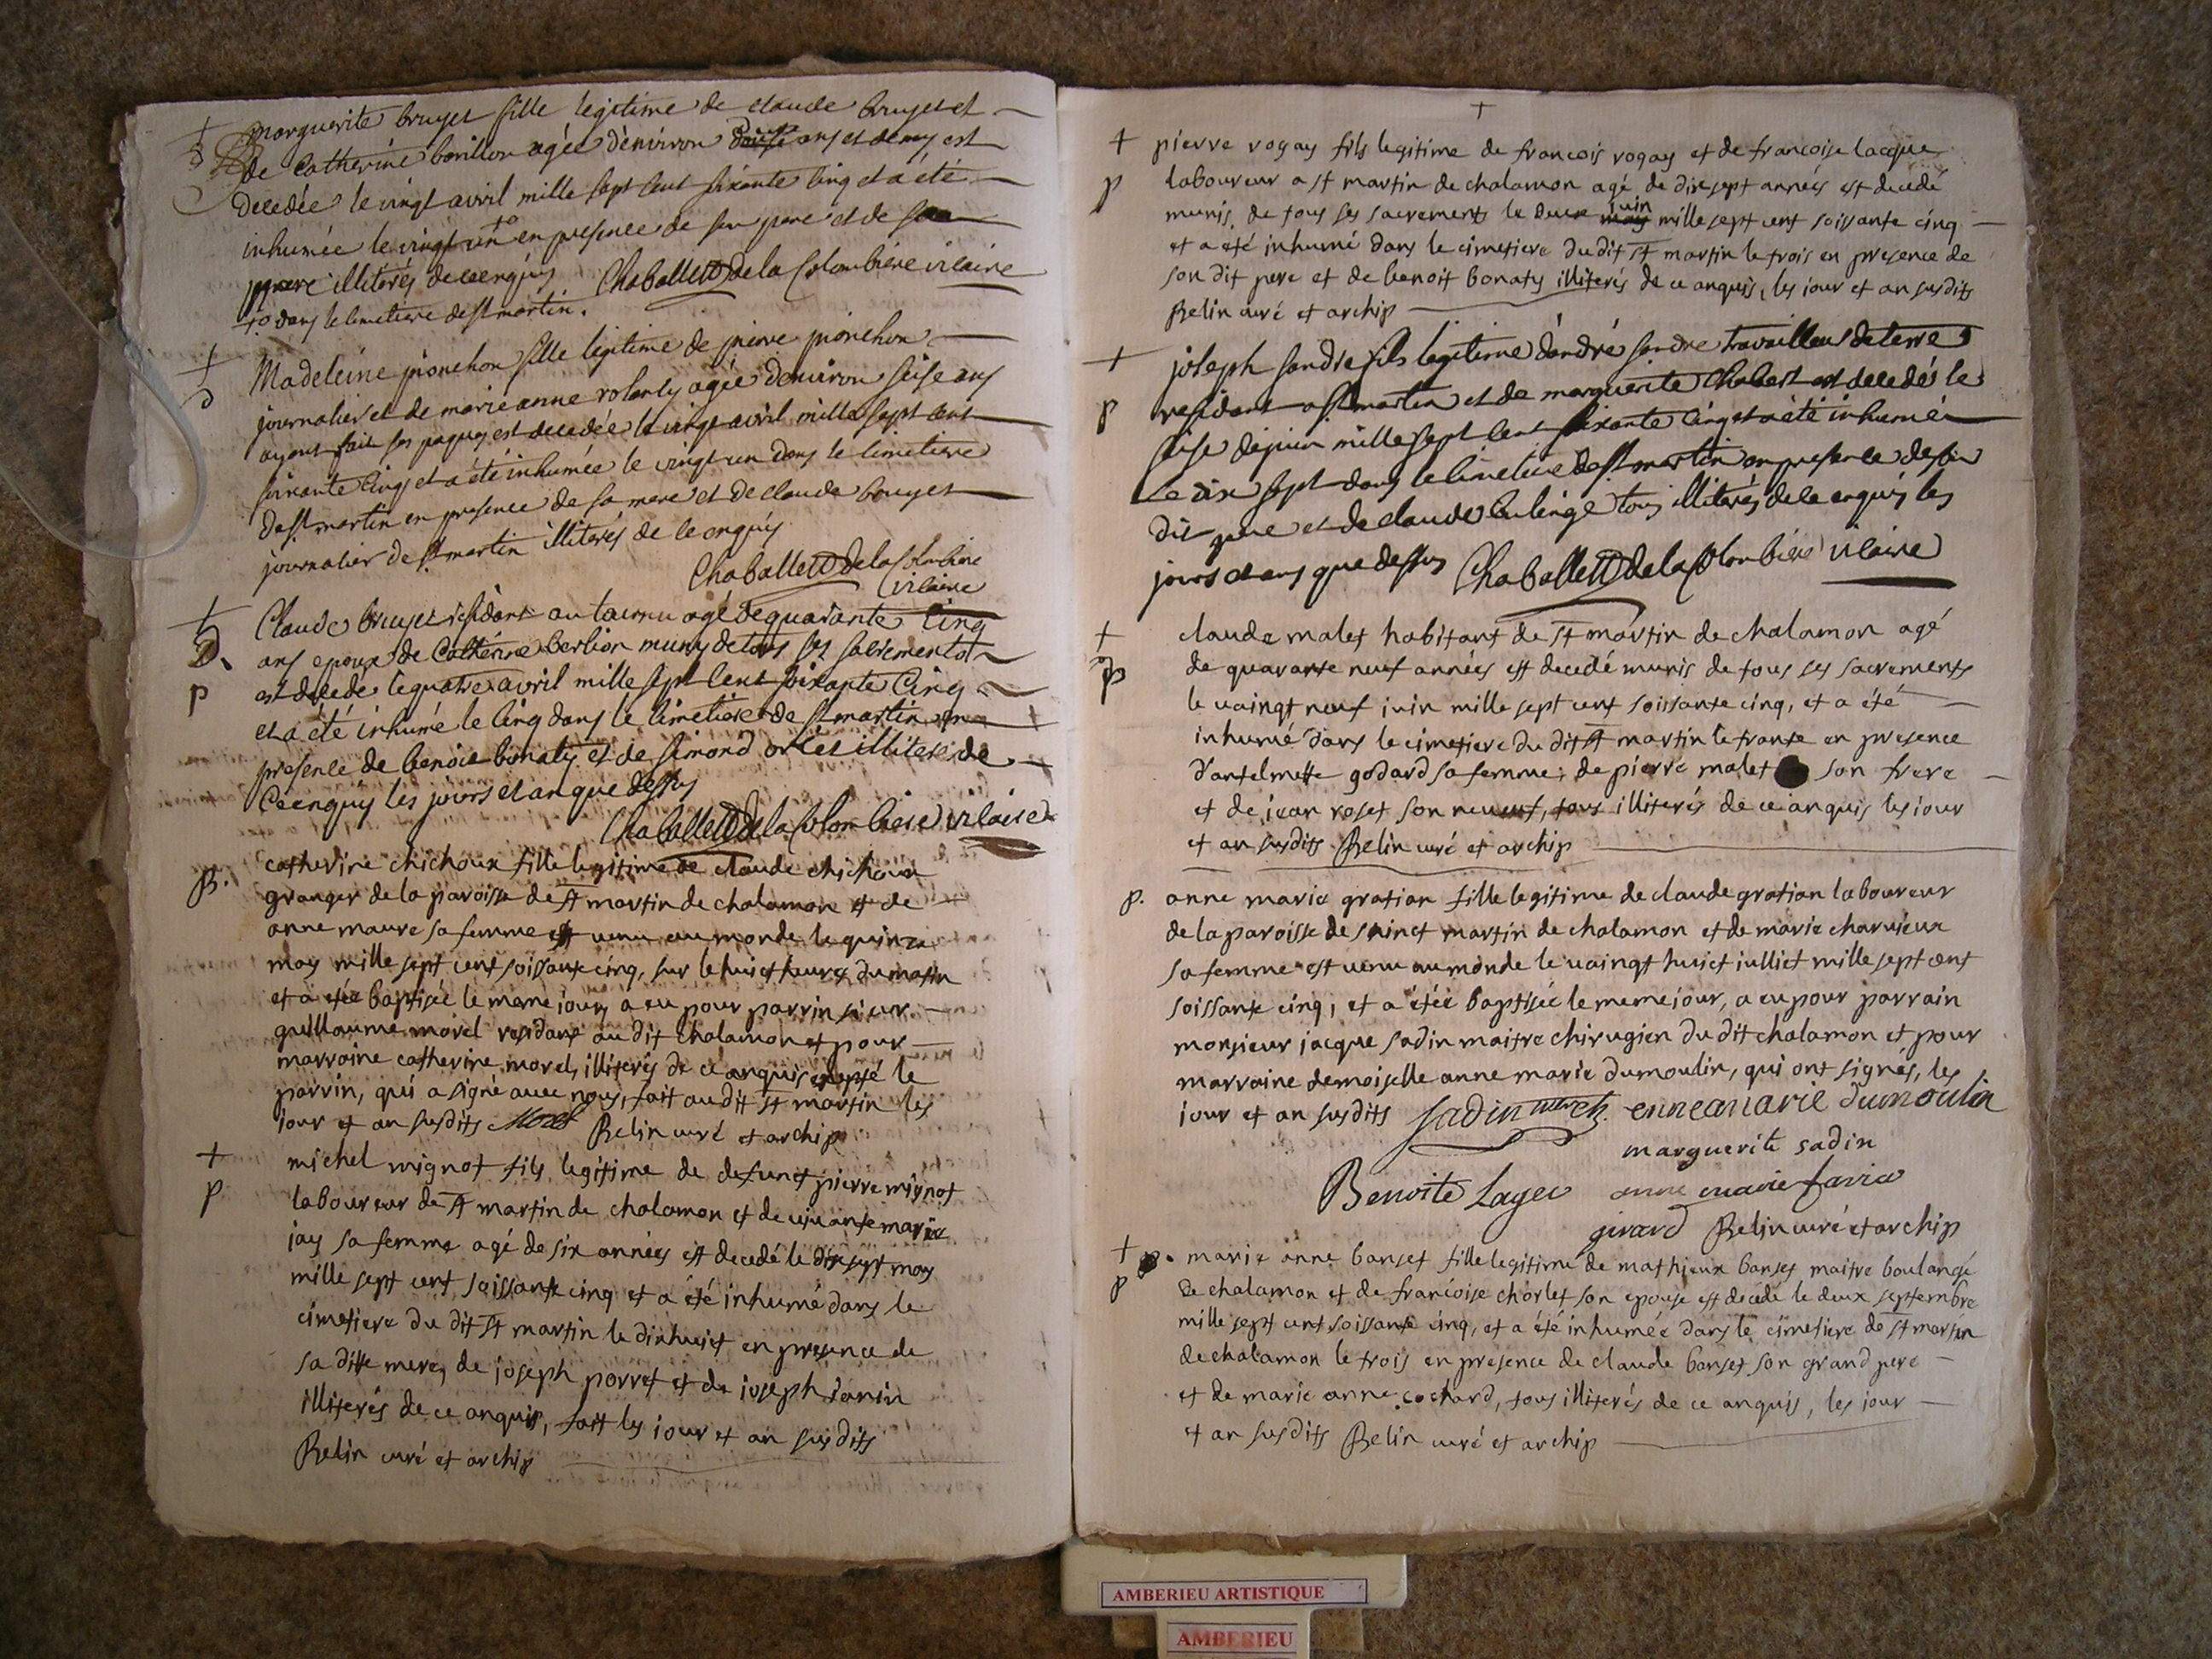 marguerite bruyet fille legitime de claude bruyet et
de Catherine agée denviron ans et demy est
decedée le vingt avril mille sept cent soixante cinq et a été
inhumée le vingt un en presence de son pere et de
illiterés de ce enquis Chaballet de la Colombiere vicaire
dans le cimetiere de st martin.
Madeleine pionchon fille legitime de pierre pionchon
journalier et de marie anne agée denviron seise ans
ayant fait ses paques est decedée le vingt avril mille sept cent
soixante cinq et a été inhumée le vingt un dans le cimetiere
de st martin en presence de sa mere et de claude bruyet
journalier de st martin illiterés de ce enquis
Chaballet de la Colombiere
vicaire
Claude bruyet residant au agé de quarante cinq
ans epoux de Catherine berlion muny de tous ses sacrements
est decede le quatre avril mille sept cent soixante cinq
et a été inhumé le cinq dans le cimetiere de st martin en
presence de benoit bonaty et de simond illiteres de
ce enquis les jours et an que dessus
Chaballet de la Colombiere vicaire
B.
catherine chichoux fille legitime de claude chichoux
granger de la paroisse de st martin de chalamon et de
anne maure sa femme est venu au monde le quinze
may mille sept cent soissante cinq, sur le huict heures du matin
et a etée baptisée le meme jour, a eu pour parrin sieur
guillaume morel residant au dit chalamon et pour
marraine catherine morel, illiterés de ce anquis exepté le
parrin, qui a signé avec nous, fait au dit st martin les
jour et an susdits Morel Belin curé et archip
+ michel mignot fils legitime de defunct pierre mignot
p laboureur de st martin de chalamon et de vivante marie
jay sa femme agé de six années est decedé le dix sept may
mille sept cent soissante cinq et a été inhumé dans le
cimetiere du dit st martin le dix huict en presence de
sa ditte mere, de joseph porret et de joseph janin
illiterés de ce anquis, fait les jour et an sus dits
Belin curé et archip
+
+ pierre rogay fils legitime de francois rogay et de francoise lacque
p laboureur a st martin de chalamon agé de dix sept années est decedé
munis de tous ses sacrements le deux juin may mille sept cent soissante cinq
et a été inhumé dans le cimetiere du dit st martin le trois en presence de
son dit pere et de benoit bonaty illiterés de ce anquis, les jour et an susdits
Belin curé et archip
+ joseph sandre fils legitime dandré sandre travailleur de terre
p residant a st martin et de marguerite Chabert est decedé le
seise de juin mille sept cent soixante cinq et a été inhumé
le dix sept dans le cimetiere de st martin en presence de son
dit pere et de claude tous illiterés de ce enquis les
jours et ans que dessus Chaballet de la Colombiere vicaire
+ claude malet habitant de st martin de chalamon agé
p de quarante neuf années est decedé munis de tous ses sacrements
le vaingt neuf juin mille sept cent soissante cinq, et a été
inhumé dans le cimetiere du dit st martin le trante en presence
d'antelmette godard sa femme, de pierre malet son frere
et de jean roset son neveuf, tous illiterés de ce anquis les jour
et an susdits Belin curé et archip
p. anne marie gration fille legitime de claude gration laboureur
de la paroisse de sainct martin de chalamon et de marie charvieux
sa femme est venu au monde le vaingt huict julliet mille sept cent
soissante cinq, et a étée baptisée le meme jour, a eu pour parrain
monsieur jacque sadin maitre chirugien du dit chalamon et pour
marraine demoiselle anne marie dumoulin, qui ont signés, les
jour et an susdits sadin enneanarie dumoulin
marguerite sadin
Benoite Lager anne marie favie
girard Belin curé et archip
+ p. marie anne banset fille legitime de mathieux banset maitre boulangé
p de chalamon et de francoise chorlet son epouse est decede le deux septembre
mille sept cent soissante cinq, et a été inhumée dans le cimetiere de st martin
de chalamon le trois en presence de claude banset son grand pere
et de marie anne cochard, tous illiterés de ce anquis, les jour
et an susdits Belin curé et archip
AMBERIEU ARTISTIQUE
AMBERIEU